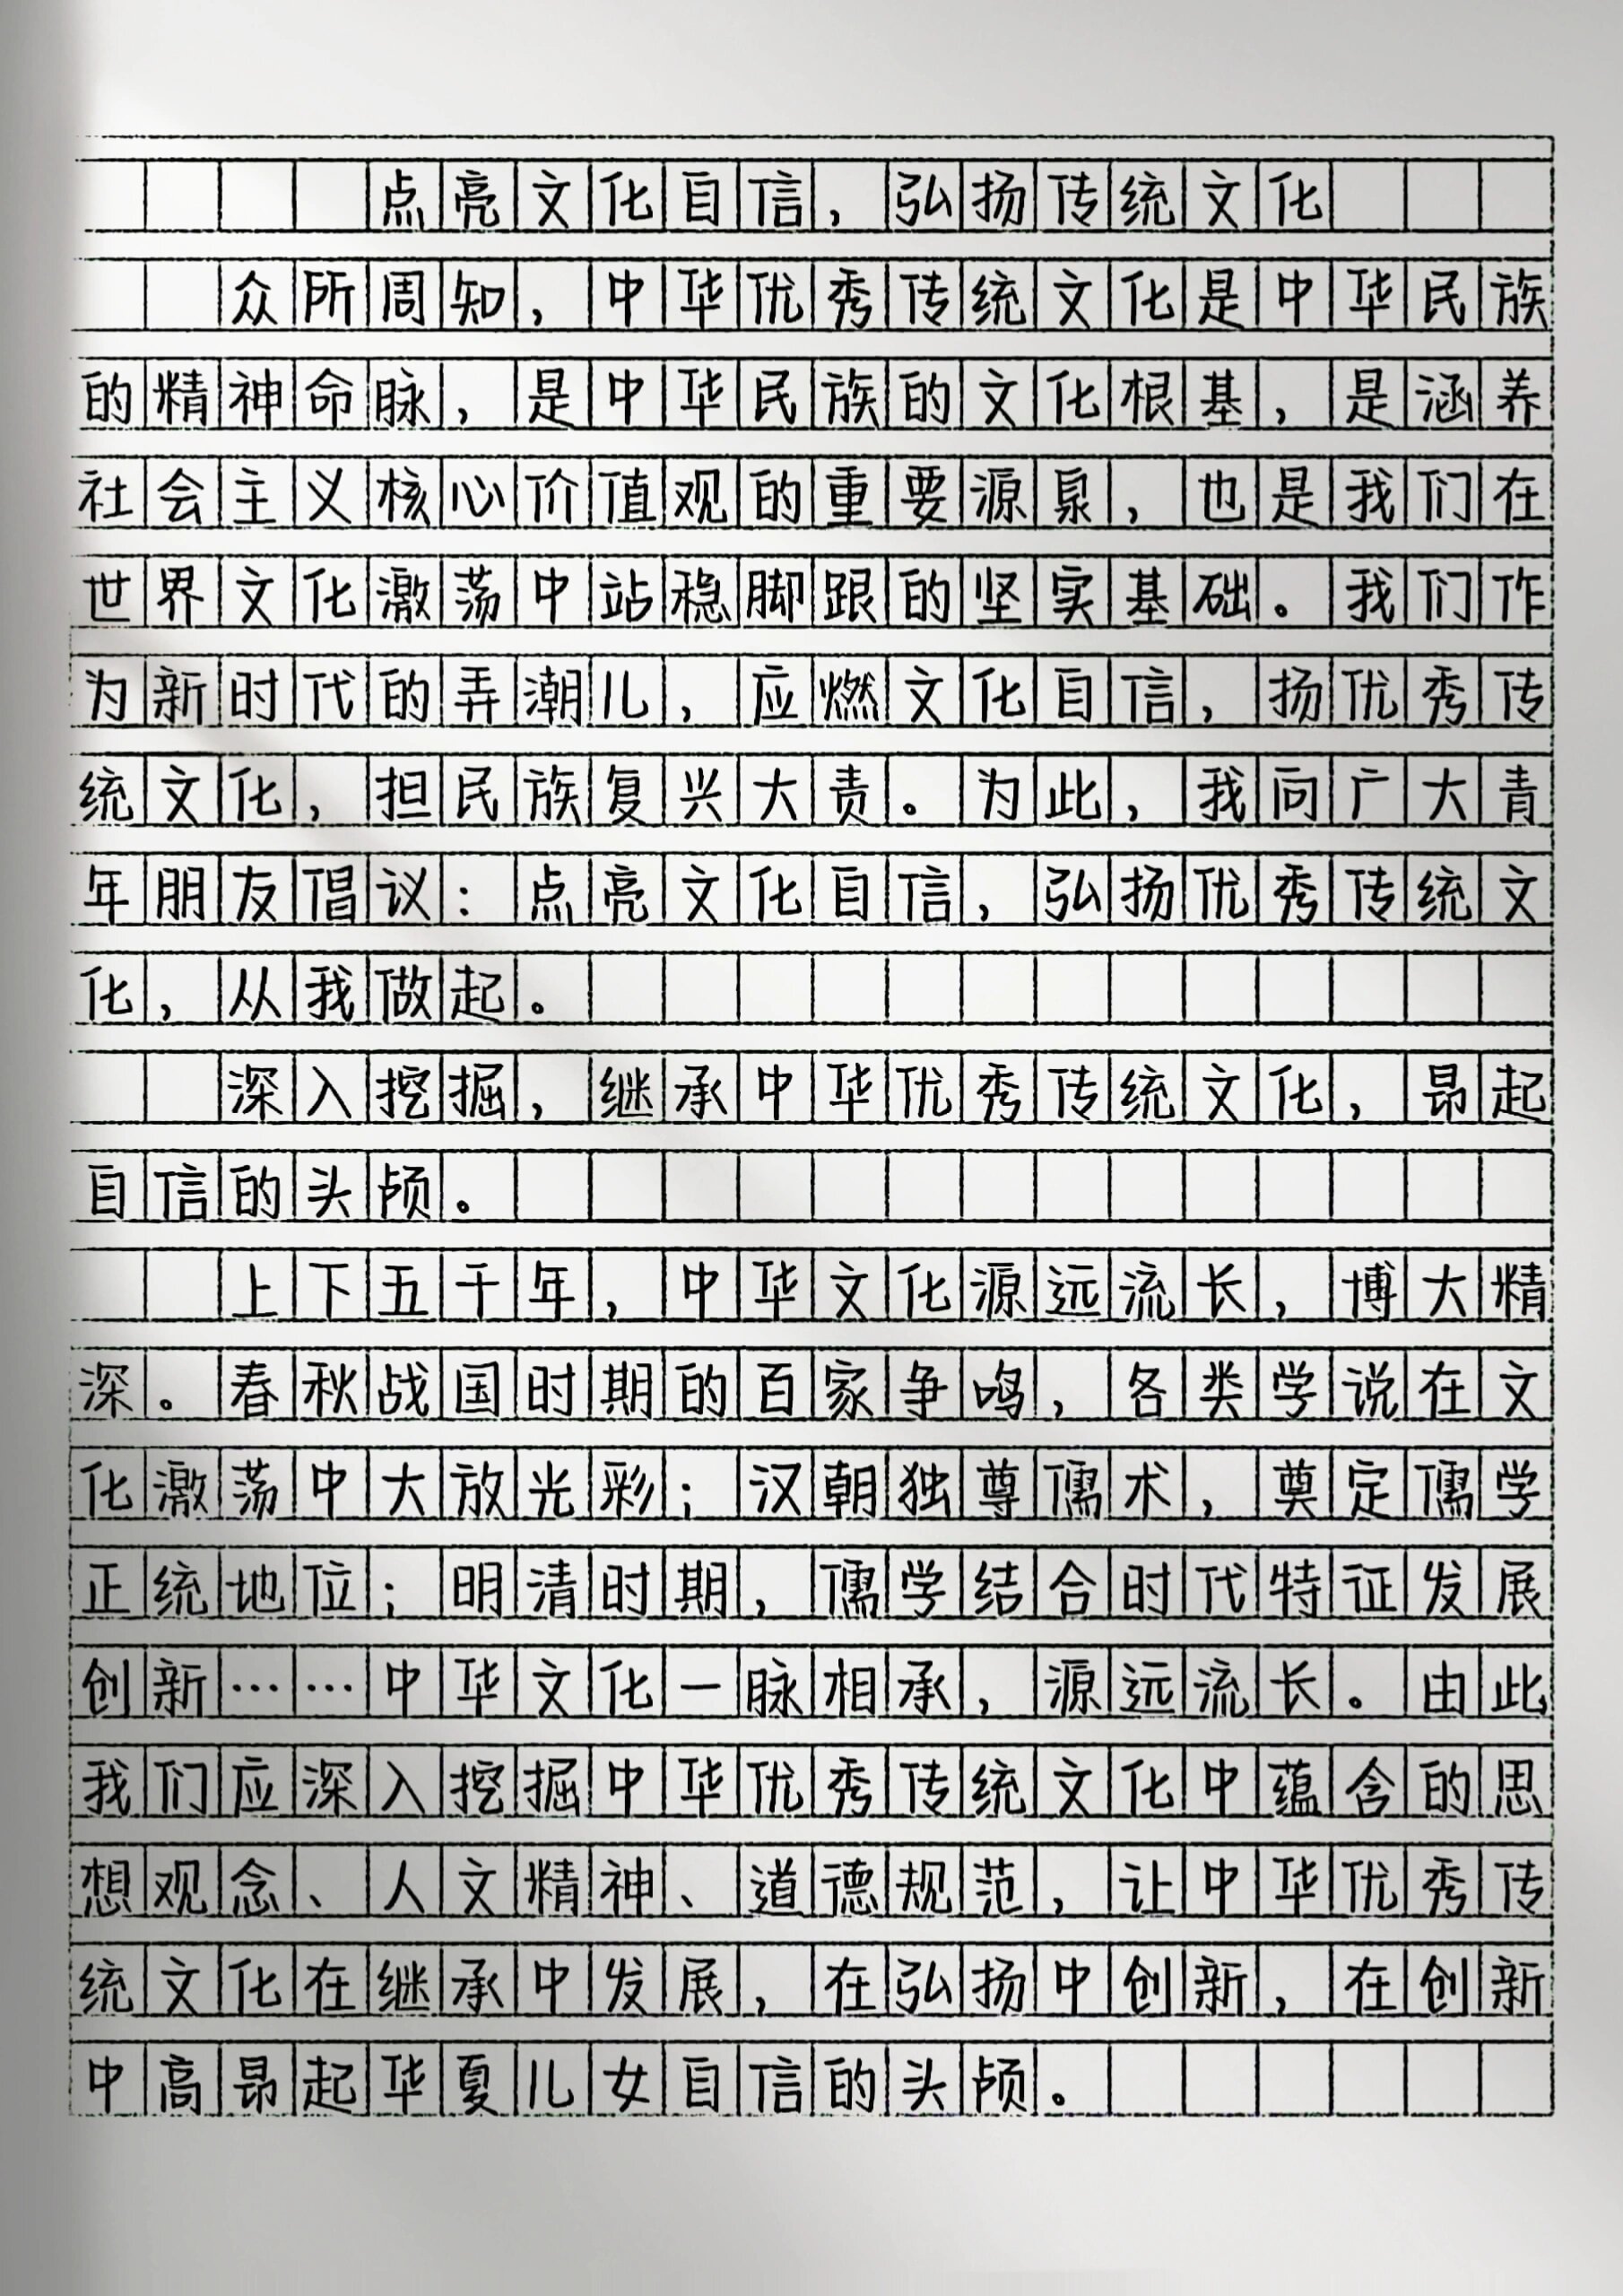 点亮文化自信，弘扬传统文化
众所周知，中华优秀传统文化是中华民族
的精神命脉，是中华民族的文化根基，是涵养
社会主义核心价值观的重要源泉，也是我们在
世界文化激荡中站稳脚跟的坚实基础。我们作
为新时代的弄潮儿，应燃文化自信，扬优秀传
统文化，担民族复兴大责。为此，我向广大青
年朋友倡议：点亮文化自信，弘扬优秀传统文
化，从我做起。
深入挖掘，继承中华优秀传统文化，昂起
自信的头颅。
上下五千年，中华文化源远流长，博大精
深。春秋战国时期的百家争鸣，各类学说在文
化激荡中大放光彩；汉朝独尊儒术，奠定儒学
正统地位；明清时期，儒学结合时代特征发展
创新……中华文化一脉相承，源远流长。由此
我们应深入挖掘中华优秀传统文化中蕴含的思
想观念、人文精神、道德规范，让中华优秀传
统文化在继承中发展，在弘扬中创新，在创新
中高昂起华夏儿女自信的头颅。